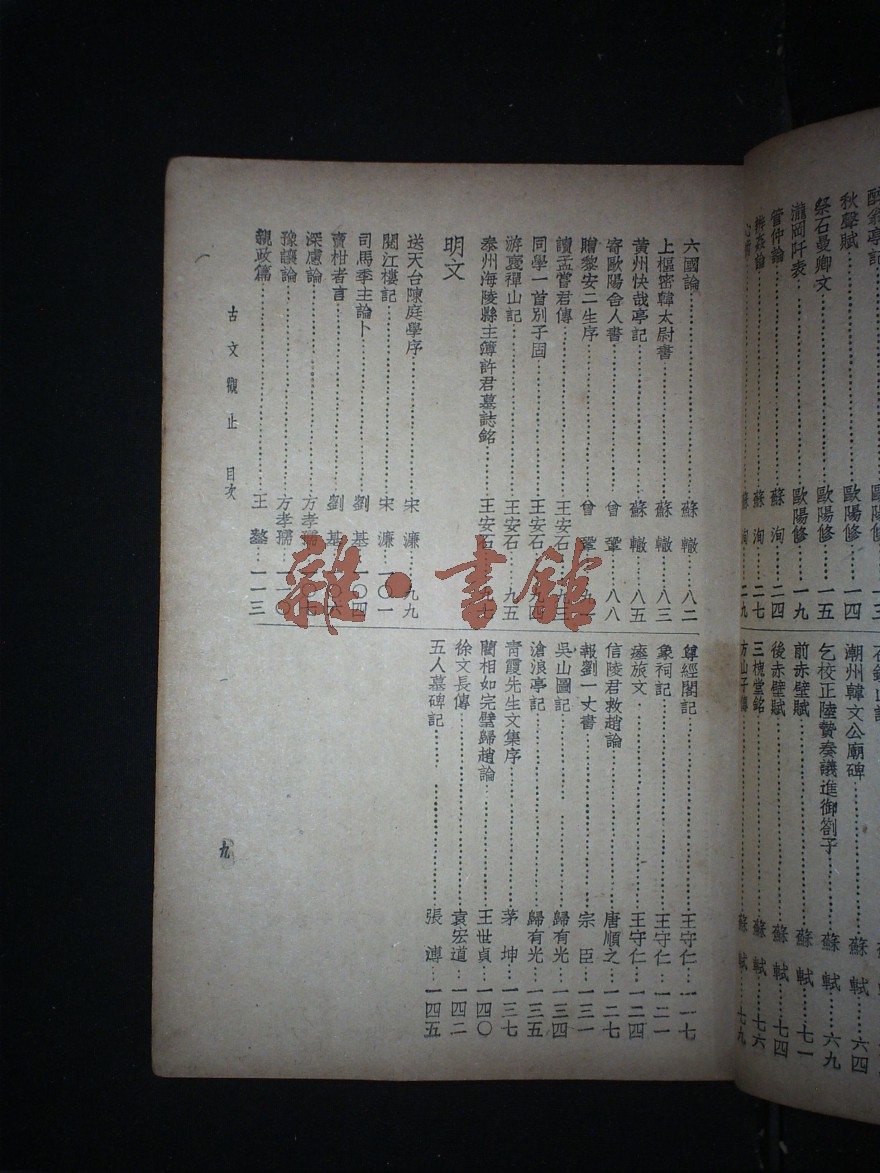 秋聲賦 歐陽修 一四
祭石曼卿文 歐陽修 一五
瀧岡阡表 歐陽修 一九
管仲論 蘇洵 二四
辨姦論 蘇洵 二七
潮州韓文公廟碑 蘇軾 六四
乞校正陸贄奏議進御劄子 蘇軾 六九
前赤壁賦 蘇軾 七一
後赤壁賦 蘇軾 七四
三槐堂銘 蘇軾 七六
方山子傳 蘇軾 七九
六國論 蘇轍 八二
上樞密韓太尉書 蘇轍 八三
黃州快哉亭記 蘇轍 八五
寄歐陽舍人書 曾鞏 八八
贈黎安二生序 曾鞏
讀孟嘗君傳 王安石 九三
同學一首別子固 王安石 九四
游褒禪山記 王安石 九五
泰州海陵縣主簿許君墓誌銘 王安石 九七
明文
送天台陳庭學序 宋濂 九九
閱江樓記 宋濂 一〇一
司馬季主論卜 劉基 一〇四
賣柑者言 劉基 一〇六
深慮論 方孝孺 一〇七
豫讓論 方孝孺 一一〇
親政篇 王鏊 一一三
尊經閣記 王守仁 一一七
象祠記 王守仁 一二一
瘞旅文 王守仁 一二四
信陵君救趙論 唐順之 一二七
報劉一丈書 宗臣 一三一
吳山圖記 歸有光 一三四
滄浪亭記 歸有光 一三五
青霞先生文集序 茅坤 一三七
藺相如完璧歸趙論 王世貞 一四〇
徐文長傳 袁宏道 一四二
五人墓碑記 張溥 一四五
古文觀止 目次
九
雜·書館